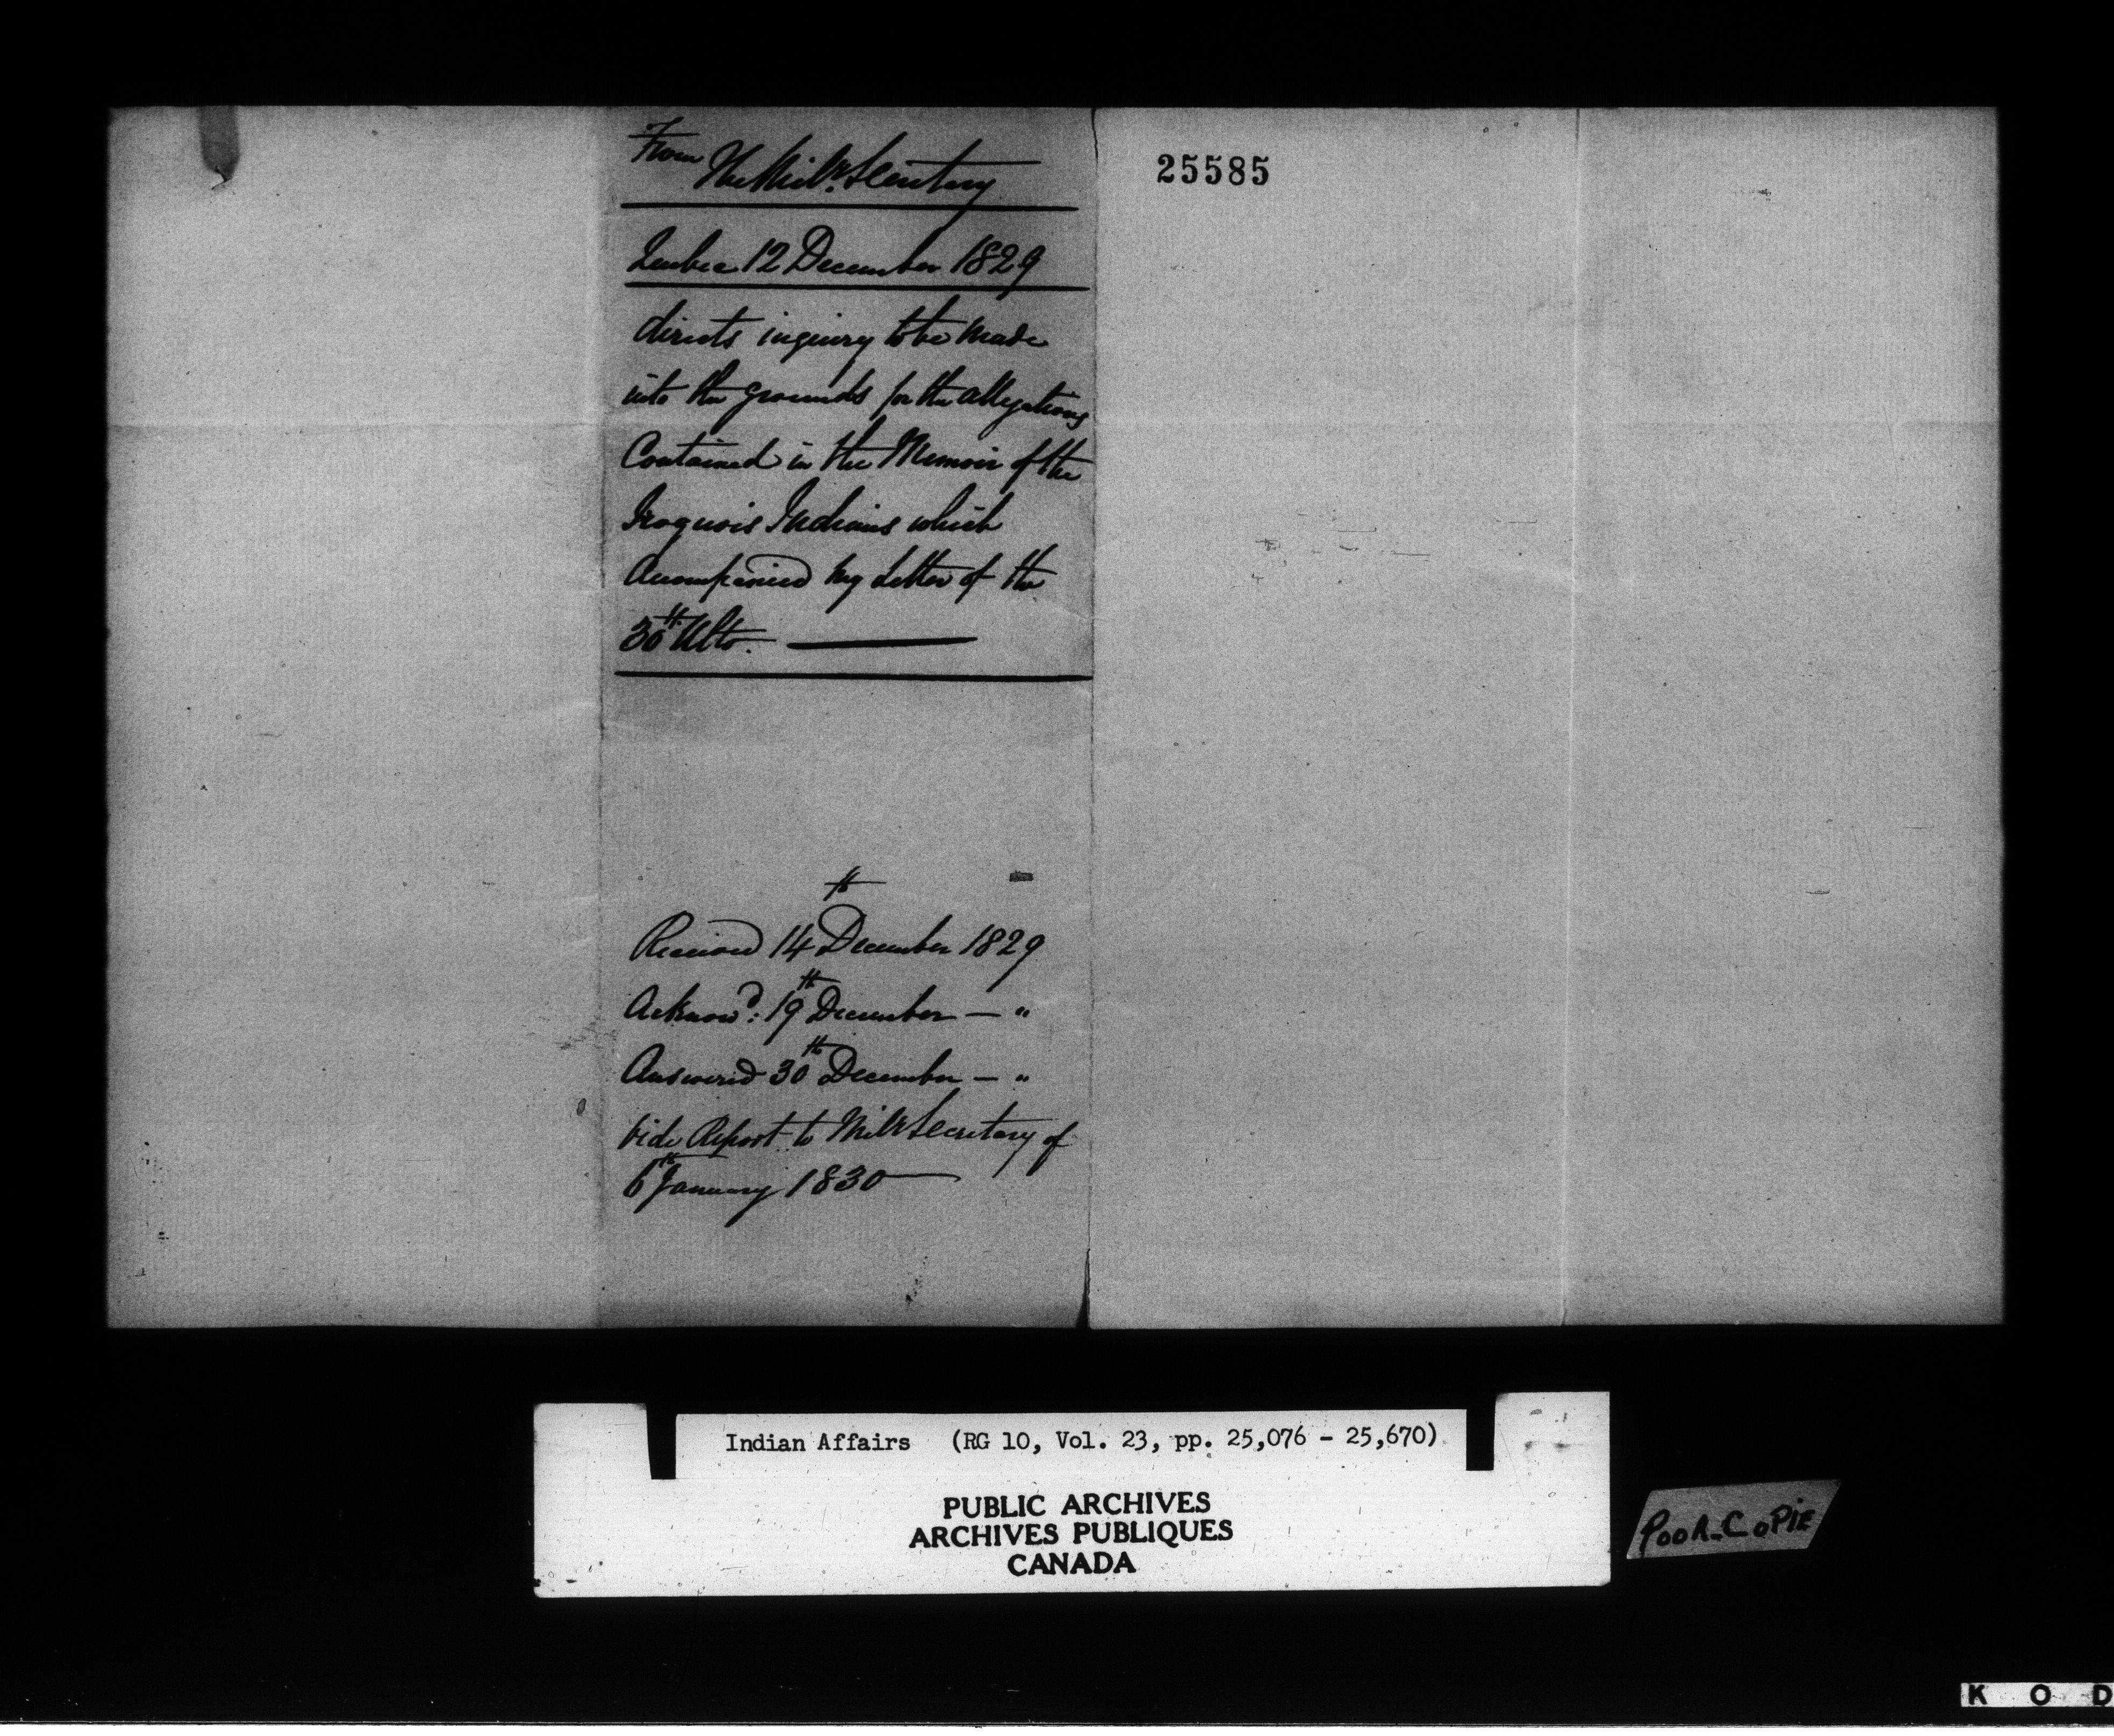 From
The Mily. Secretary
Quebec 12 December 1829
directs inquiry to be made
into the grounds for the allegations
Contained in the Memoir of the
Iroquois Indians which
Accompanied my Letter of the
30th Ulto.
25585
Received 14th December 1829
Acknowd: 19th December — "
Answered 30th December — "
vide Report to Mily Secretary of
6th January 1830
Indian Affairs (RG 10, Vol. 23, pp. 25,076 - 25,670)
PUBLIC ARCHIVES
ARCHIVES PUBLIQUES
CANADA
POOR COPIE
K O D